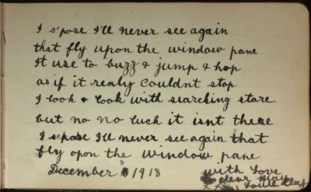 I s'pose I'll never see again
that fly upon the window pane
It use to buzz & jump & hop
as if it realy couldnt stop
I look & look with searching stare
but no no luck it isnt there
I spose I'll never see again that
fly opon the window pane
December 1918
with Love
dear May